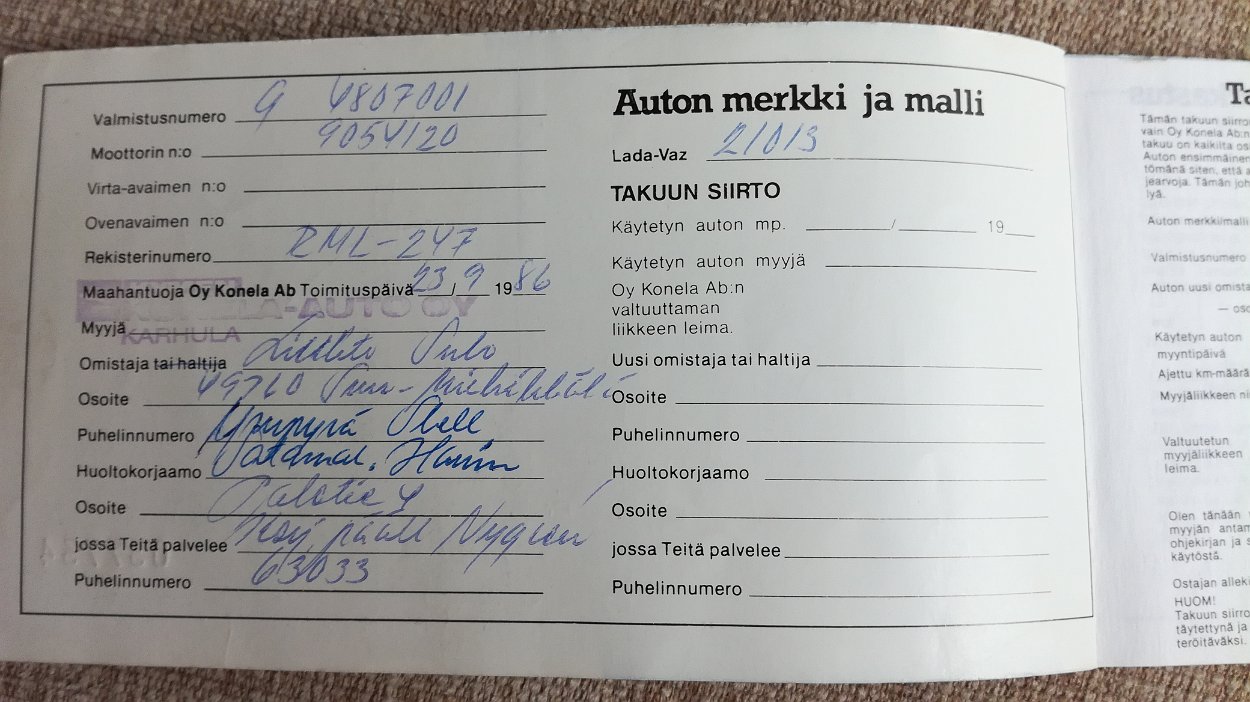 Valmistusnumero G 4807001
Moottorin n:o 9054120
Virta-avaimen n:o
Ovenavaimen n:o
Rekisterinumero RML-247
Maahantuoja Oy Konela Ab Toimituspäivä 23 / 9 1986
-AUTO OY
Myyjä
KARHULA
Omistaja tai haltija
Osoite 49760
Puhelinnumero
Huoltokorjaamo
Osoite
jossa Teitä palvelee Nygren
Puhelinnumero 63033
Auton merkki ja malli
Lada-Vaz 21013
TAKUUN SIIRTO
Käytetyn auton mp. / 19
Käytetyn auton myyjä
Oy Konela Ab:n
valtuuttaman
liikkeen leima.
Uusi omistaja tai haltija
Osoite
Puhelinnumero
Huoltokorjaamo
Osoite
jossa Teitä palvelee
Puhelinnumero
Ta
Tämän takuun siirro
vain Oy Konela Ab:n
takuu on kaikilta os
Auton ensimmäinen
tömänä siten, että a
jearvoja. Tämän joh
lyä.
Auton merkki/malli
Valmistusnumero
Auton uusi omista
— oso
Käytetyn auton
myyntipäivä
Ajettu km-määrä
Myyjäliikkeen ni
Valtuutetun
myyjäliikkeen
leima.
Olen tänään
myyjän antam
ohjekirjan ja s
käytöstä.
Ostajan alleki
HUOM!
Takuun siirro
täytettynä ja
teröitäväksi.